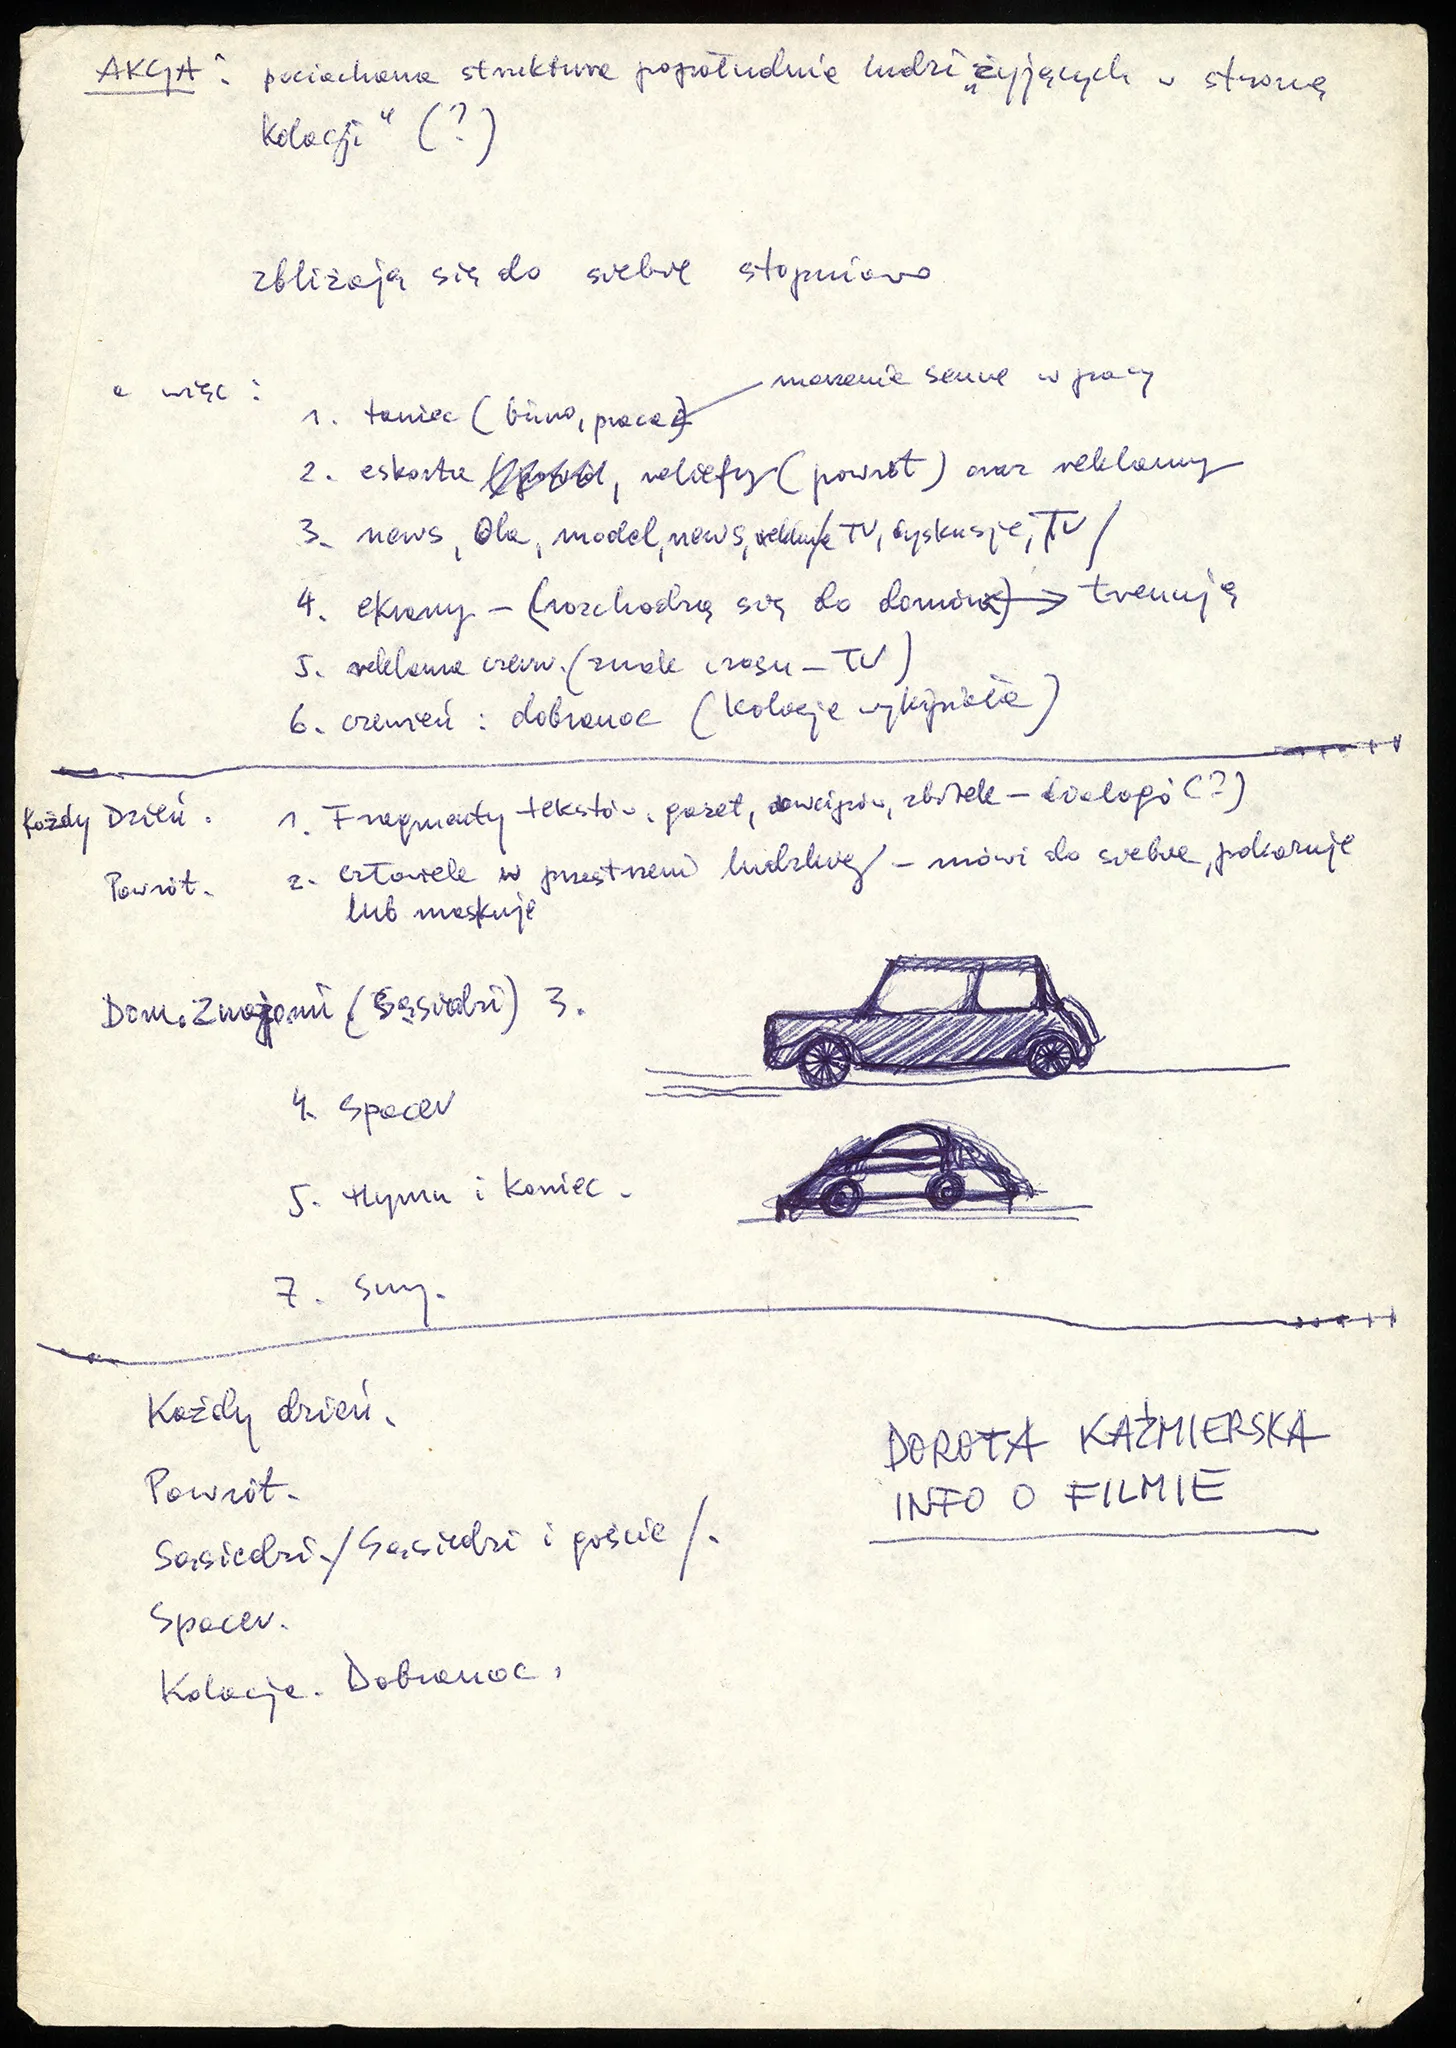 AKCJA: pociachana struktura popołudnia ludzi „żyjących w stronę
kolacji" (?)
zbliżają się do siebie stopniowo
a więc:
marzenie senne w pracy
1. taniec (biuro, praca)
2. eskorta, reliefy (powrót) oraz reklamy
3. news, Ola, model, news, TV, dyskusje, TV /
4. ekrany – (rozchodzą się do domów) → trenują
5. reklama czerw. (znak czasu – TV)
6. czerwień: dobranoc (kolacja wykipiała)
Każdy Dzień. 1. Fragmenty tekstów, gazet, dowcipów, zbitek – dialogi (?)
Powrót. 2. człowiek w przestrzeni ludzkiej – mówi do siebie, pokazuje
lub maskuje
Dom. Znajomi (Sąsiedzi) 3.
4. Spacer
5. Hymn i koniec.
7. Sny.
Każdy dzień.
Powrót.
Sąsiedzi. / Sąsiedzi i goście /.
Spacer.
Kolacja. Dobranoc.
DOROTA KAŹMIERSKA
INFO O FILMIE